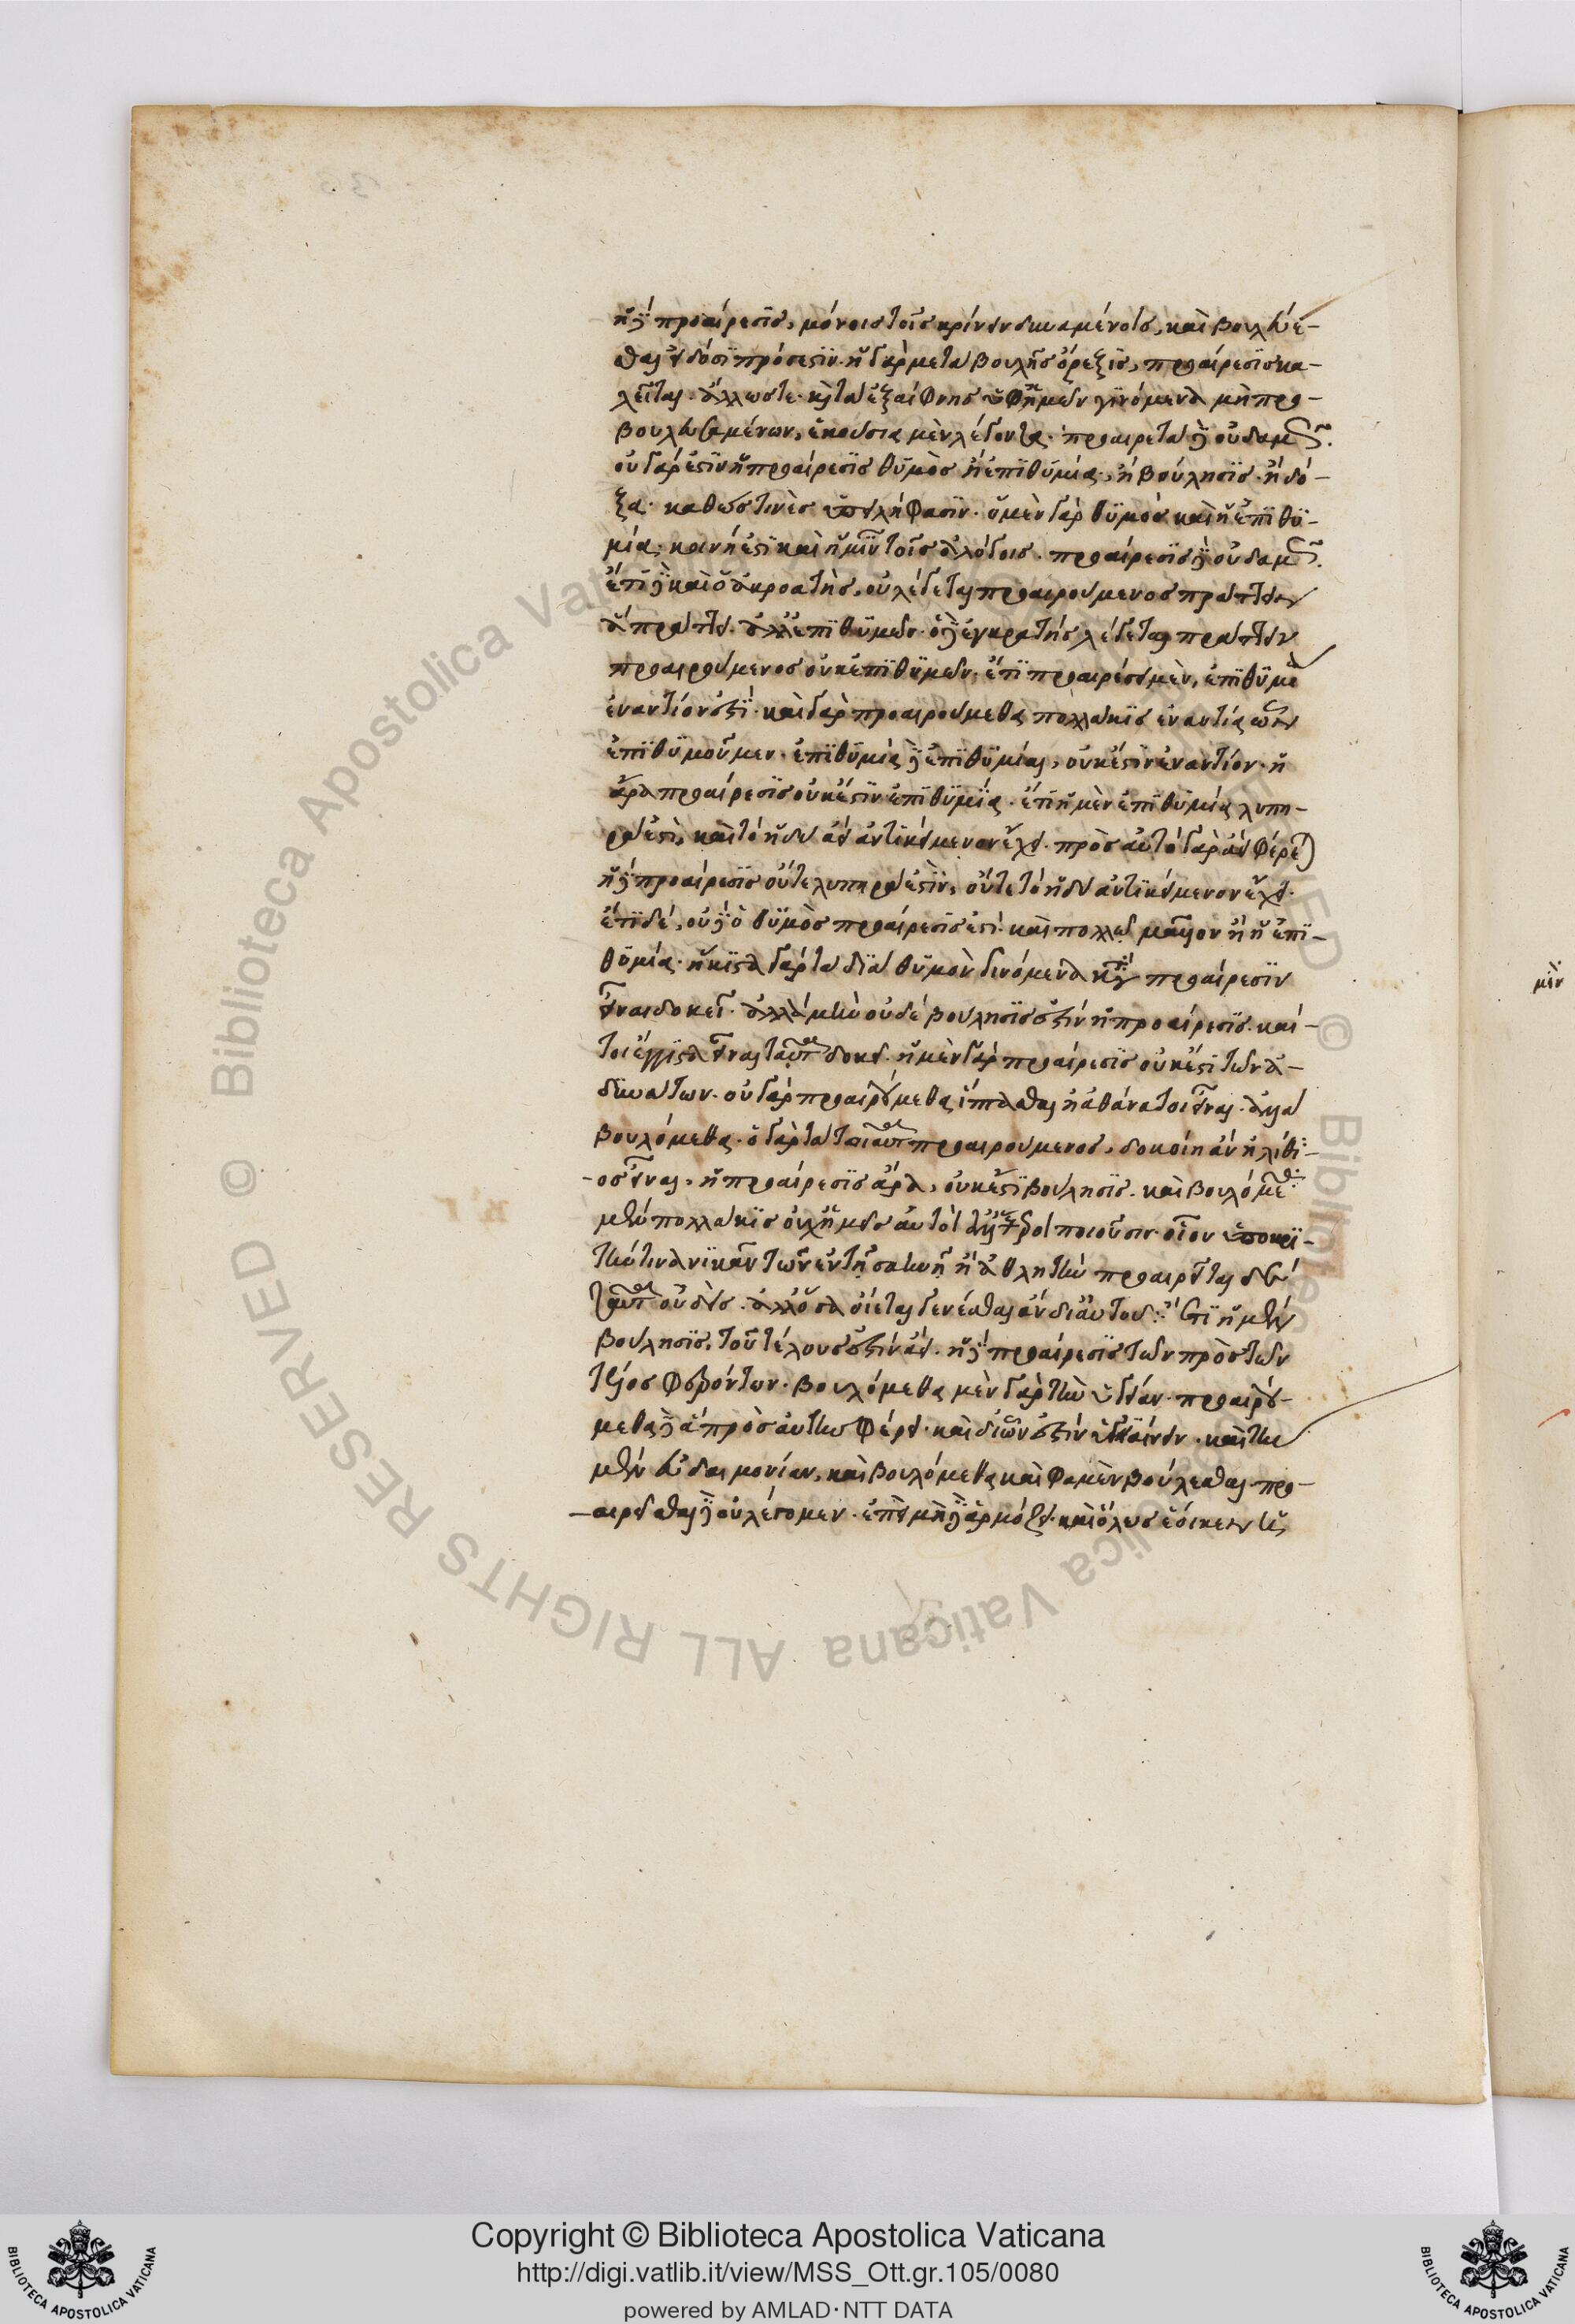 ἡ δὲ προαίρεσις, μόνοις τοῖς κρίνειν δυναμένοις, καὶ βουλεύε-
σθαι εἰδόσι πρόσεστιν. ἡ γὰρ μετὰ βουλῆς ὄρεξις, προαίρεσις κα-
λεῖται. ἄλλως τε. καὶ τὰ ἐξαίφνης ὑφ' ἡμῶν γινόμενα μὴ προ-
βουλευσαμένων, ἑκούσια μὲν λέγονται. προαιρετὰ δὲ οὐδαμῶς.
οὐ γάρ ἐστιν ἡ προαίρεσις θυμὸς ἢ ἐπιθυμία, ἢ βούλησις. ἢ δό-
ξα. καθώς τινες ὑπειλήφασιν. ὁ μὲν γὰρ θυμὸς καὶ ἡ ἐπιθυ-
μία, κοινή ἐστι καὶ ἡμῖν τοῖς ἀλόγοις. προαίρεσις δὲ οὐδαμῶς.
ἔτι δὲ καὶ ὁ ἀκρατὴς, οὐ λέγεται προαιρούμενος πράττειν
ἃ πράττει. ἀλλ' ἐπιθυμῶν. ὁ δὲ ἐγκρατὴς λέγεται πράττειν
προαιρούμενος οὐκ ἐπιθυμῶν. ἔτι προαιρέσει μὲν, ἐπιθυμία
ἐναντίον ἐστί. καὶ γὰρ προαιρούμεθα πολλάκις ἐναντία ὧν
ἐπιθυμοῦμεν. ἐπιθυμία δὲ ἐπιθυμίαι, οὐκ ἔστιν ἐναντίον. ἡ
ἄρα προαίρεσις οὐκ ἔστιν ἐπιθυμία. ἔτι ἡ μὲν ἐπιθυμία λυπη-
ρά ἐστι, καὶ τὸ ἡδὺ ἀεὶ ἀντικείμενον ἔχει. πρὸς αὐτὸ γὰρ ἀεὶ φέρεται
ἡ δὲ προαίρεσις οὔτε λυπηρά ἐστιν, οὔτε τὸ ἡδὺ ἀντικείμενον ἔχει.
ἔτι δέ, οὐ δὲ ὁ θυμὸς προαίρεσίς ἐστι. καὶ πολλῷ μᾶλλον ἢ ἡ ἐπι-
θυμία. ἥκιστα γὰρ τὰ διὰ θυμὸν γινόμενα κατὰ προαίρεσιν
εἶναι δοκεῖ. ἀλλὰ μὴν οὐδὲ βούλησίς ἐστιν ἡ προαίρεσις. καί-
τοι ἔγγιστα εἶναι ταύτης δοκεῖ. ἡ μὲν γὰρ προαίρεσις οὐκ ἔστι τῶν ἀ-
δυνάτων. οὐ γὰρ προαιρούμεθα ἵπτασθαι ἢ ἀθάνατοι εἶναι. ἀλλὰ
βουλόμεθα. ὁ γὰρ τὰ τοιαῦτα προαιρούμενος, δοκοίη ἂν ἠλίθι-
-ος εἶναι. ἡ προαίρεσις ἄρα, οὐκ ἔστι βούλησις. καὶ βουλόμεθα
μὲν πολλάκις οὐχ ἡμεῖς αὐτοὶ ἀλλ' ἕτεροι ποιοῦσιν. οἷον ὑποκρι-
τήν τινα νικᾶν τῶν ἐν τῇ σκηνῇ ἢ ἀθλητὴν προαιρεῖται δὲ
ταῦτα οὐδείς. ἀλλ' ὅσα οἴεται γενέσθαι ἂν δι' αὑτοῦ: ἔτι ἡ μὲν
βούλησις, τοῦ τέλους ἐστὶν ἀεί. ἡ δὲ προαίρεσις τῶν πρὸς τῶν
τέλος φερόντων. βουλόμεθα μὲν γὰρ τὴν ὑγείαν. προαιρού-
μεθα δὲ ἃ πρὸς αὐτὴν φέρει. καὶ δι' ὧν ἐστὶν ὑγιαίνειν. καὶ τὴν
μὲν εὐδαιμονίαν, καὶ βουλόμεθα καὶ φαμὲν βούλεσθαι. προ-
-αιρεῖσθαι δὲ οὐ λέγομεν. ἐπεὶ μὴ δὲ ἁρμόζει. καὶ ὅλως ἔοικεν
μὲν
Copyright © Biblioteca Apostolica Vaticana
http://digi.vatlib.it/view/MSS_Ott.gr.105/0080
powered by AMLAD·NTT DATA